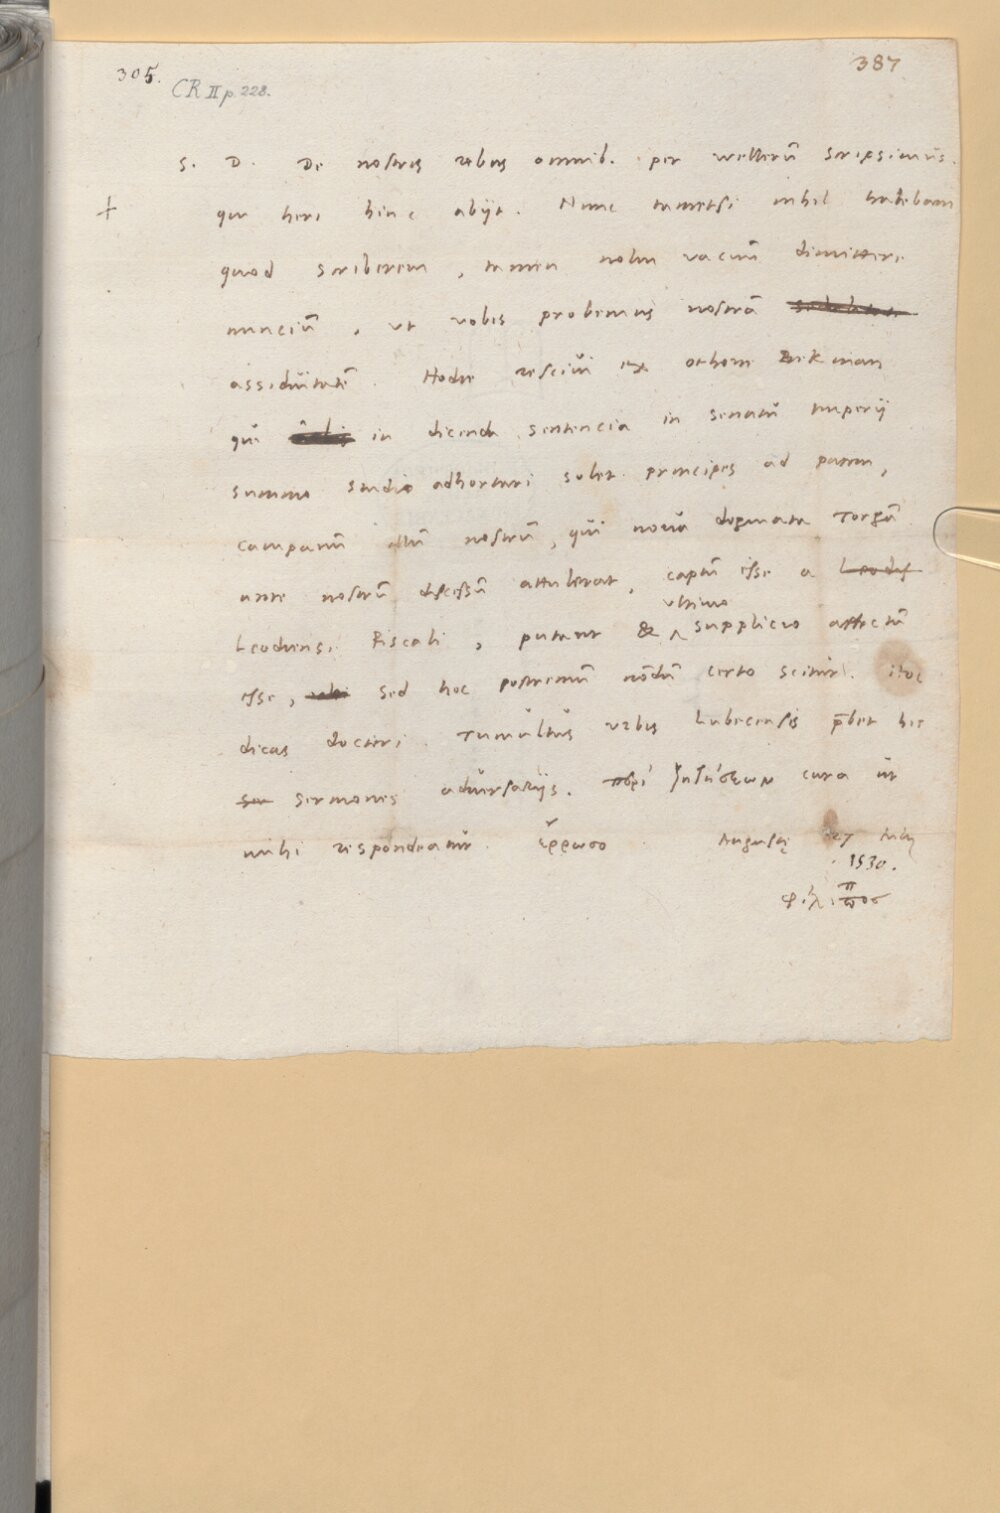 305.
CR II p. 228.
387
S. D. De nostris rebus omnib. per wellerū scripsimus.
qui heri hinc abijt. Nunc tametsi nihil habebam
quod scriberem, tamen nolui vacuū dimittere
nunciū, ut vobis probemus nostrā
assiduitatē. Hodie rescivi ex othone Bekman
qui in dicenda sentencia in senatu Imperij
summo studio adhortari solet principes ad pacem,
campanū illū nostrū, qui nova dogmata Torgā
ante nostrū discessū attulerat, captū esse a Leodis
Leodiensi Fiscali, putant & ultimo supplicio affectū
esse, sed hoc postremū nōdū certo scitur. Hoc
dicas doctori. Tumultus urbis Lubecensis p̄bet his
ser sermones adversarijs. περὶ ζητήσεων cura ut
mihi respondeatur. ἔρρωσο. Augustę 27 Julij
1530.
φίλιππος